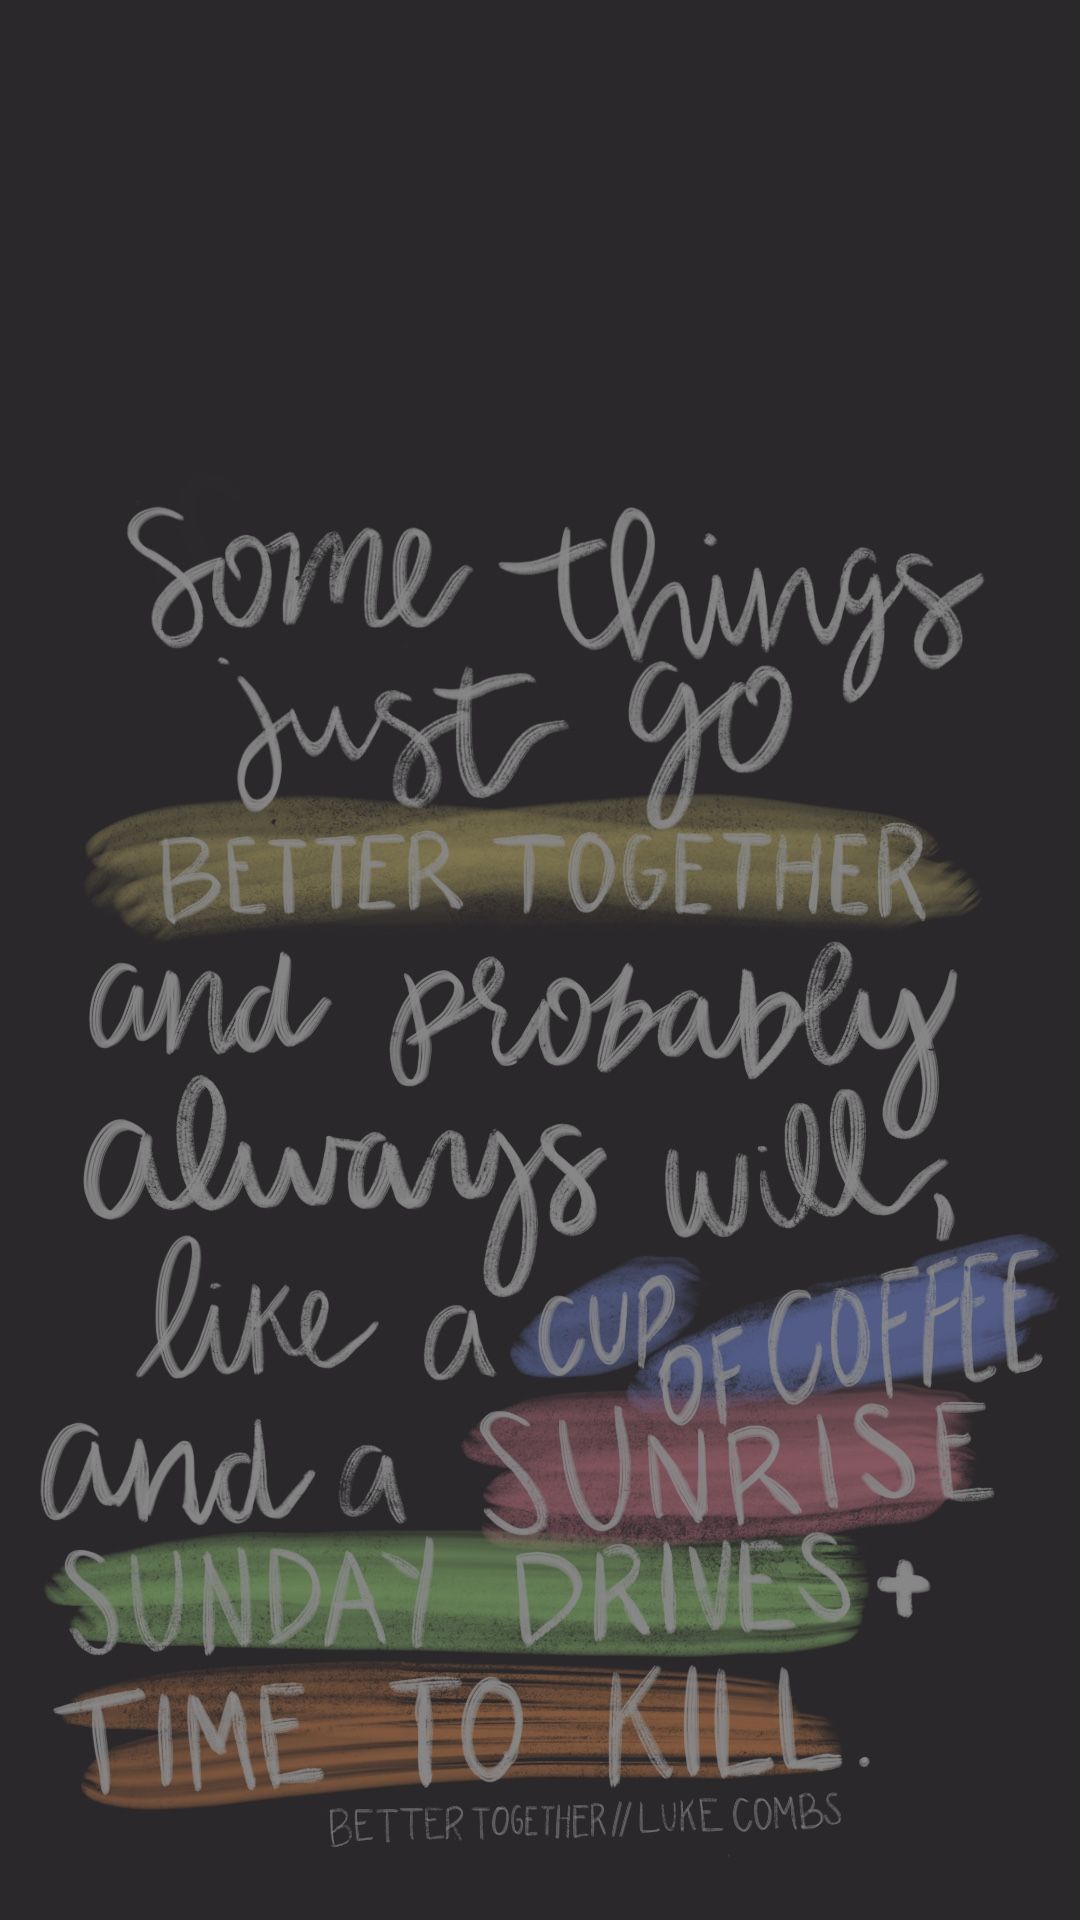 Some things
just go
BETTER TOGETHER
and probably
always will,
like a CUP OF COFFEE
and a SUNRISE
SUNDAY DRIVES +
TIME TO KILL.
BETTER TOGETHER//LUKE COMBS